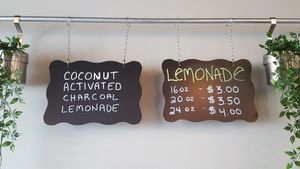 COCONUT
ACTIVATED
CHARCOAL
LEMONADE
LEMONADE
16oz - $3.00
20oz - $3.50
24oz - $4.00